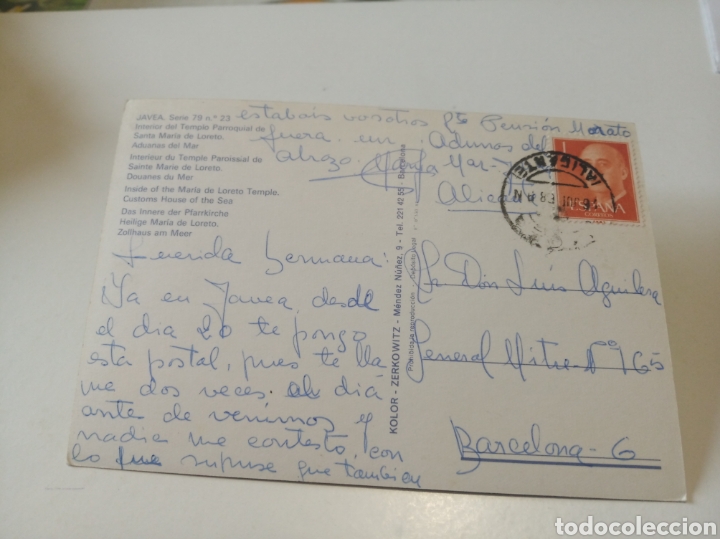 JAVEA. Serie 70 n.º 23
Interior del Temple Parroquial de
Santa María de Loreto.
Aduanas del Mar
Interieur du Temple Paroissial de
Sainte Marie de Loreto.
Douanes du Mar
Inside of the María de Loreto Temple.
Customs House of the Sea
Das Innere der Pfarrkirche
Heilige María de Loreto.
Zollhaus am Meer
Querida hermana:
Ya en Javea, desde
el dia 20 te pongo
esta postal, pues te lla
me dos veces el diá
ante de venirnos y
nadie me contesto, con
lo que supuse que tambien
estabais vosotros
fuera. un
abrazo.
Pensión Morato
Aduanas del
Mar
Alicante
KOLOR - ZERKOWITZ - Méndez Núñez, 9 - Tel. 221 42 55 - Barcelona
Prohibida la reproducción Depósito legal
ALICANTE
ESPAÑA
CORREOS
Sr Don Luis Aguilera
General Mitre nº 165
Barcelona-6
todocoleccion